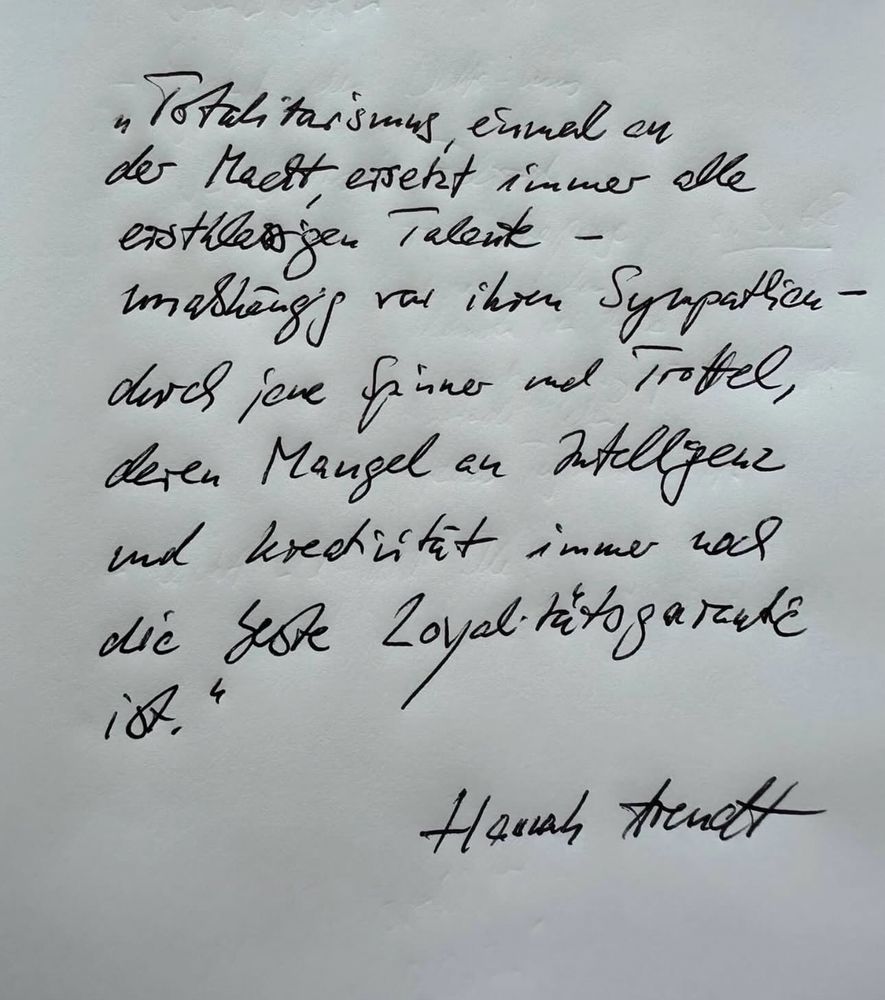 „Totalitarismus, einmal an
der Macht, ersetzt immer alle
erstklassigen Talente –
unabhängig von ihren Sympathien –
durch jene Spinner und Trottel,
deren Mangel an Intelligenz
und Kreativität immer noch
die beste Loyalitätsgarantie
ist.“
Hannah Arendt